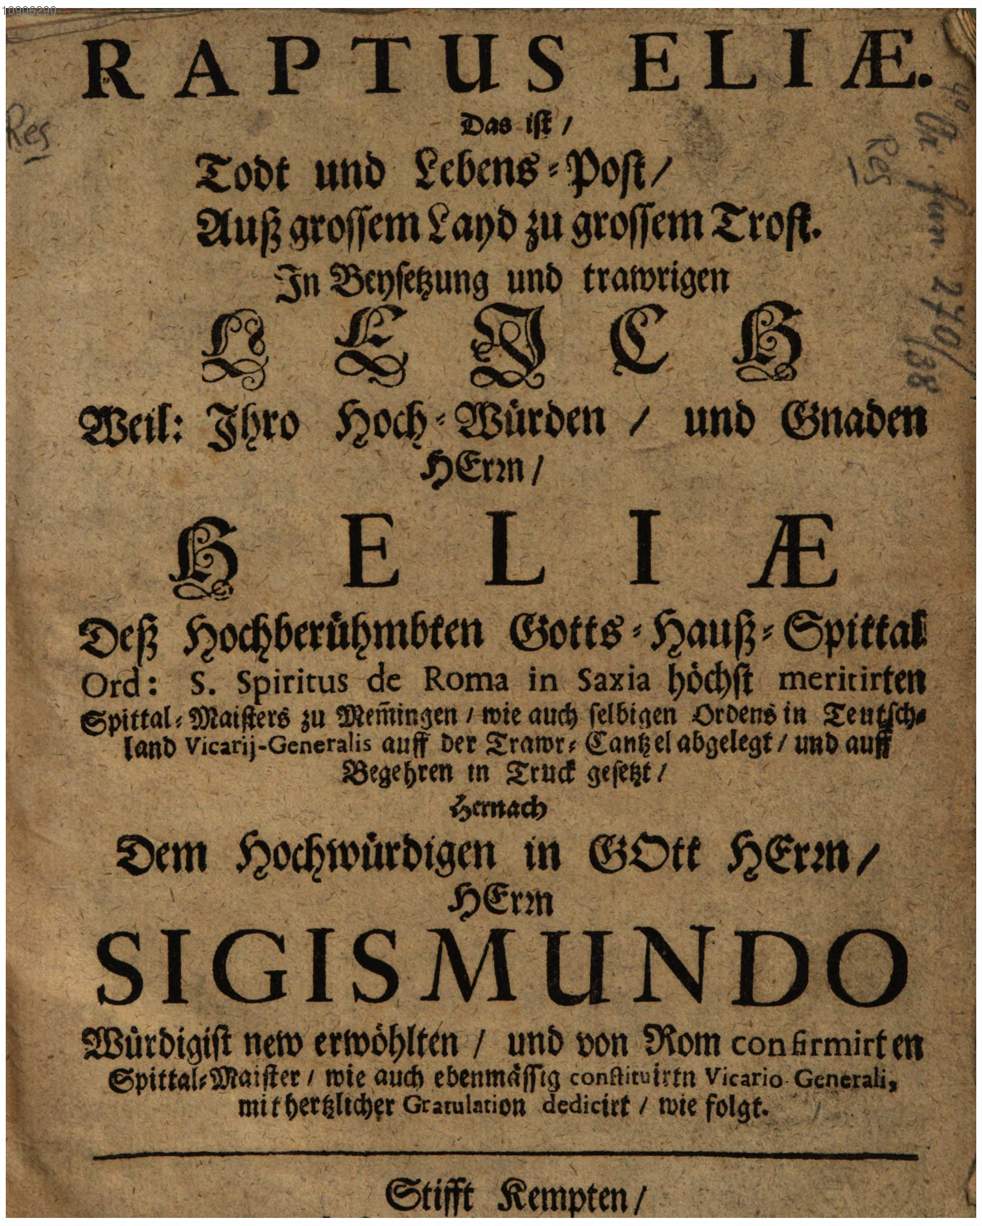 10906290
RAPTUS ELIÆ.
Das ist /
Todt und Lebens-Post /
Auß grossem Layd zu grossem Trost.
In Beysetzung und trawrigen
LEJCH
Weil: Ihro Hoch-Würden / und Gnaden
HErrn /
HELIÆ
Deß Hochberühmbten Gotts-Hauß-Spittal
Ord: S. Spiritus de Roma in Saxia höchst meritirten
Spittal-Maisters zu Mem̄ingen / wie auch selbigen Ordens in Teutsch-
land Vicarij-Generalis auff der Trawr-Cantzel abgelegt / und auff
Begehren in Truck gesetzt /
Hernach
Dem Hochwürdigen in GOtt HErrn /
HErrn
SIGISMUNDO
Würdigist new erwöhlten / und von Rom confirmirten
Spittal-Maister / wie auch ebenmässig constituirtn Vicario Generali,
mit hertzlicher Gratulation dedicirt / wie folgt.
Stifft Kempten /
Res
Res
4° Or. fun. 270/138